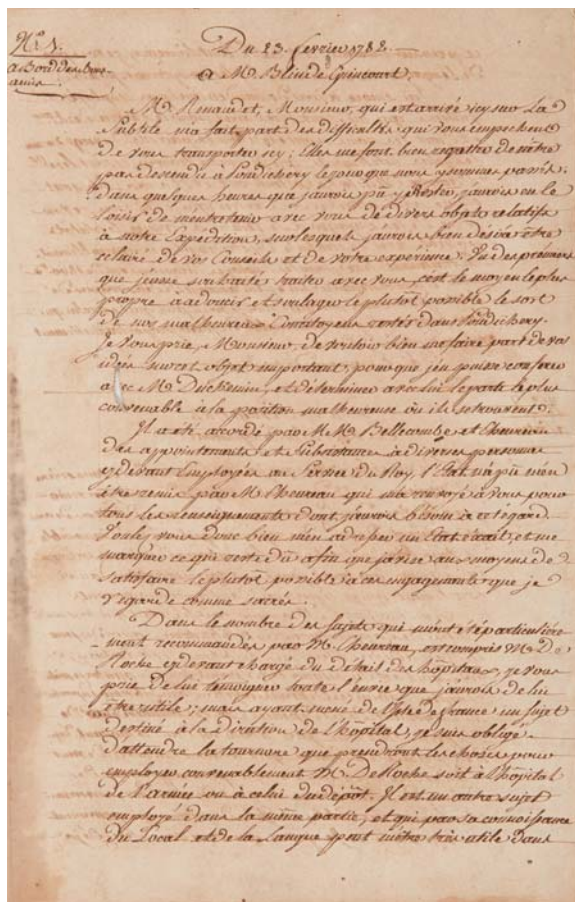 N.º 1.
Du 23. fevrier 1782.
a Bord des bons
amis.
a M. Blin de Grincourt.
M. Renaudet, Monsieur, qui est arrivé icy sur La
Subtile m'a fait part des difficultés qui vous empechent
de vous transporter icy; Elles me font bien regretter de n'être
pas descendu à Pondichery le jour que nous y sommes passés.
dans quelques heures que j'aurois pû y rester, j'aurois eu le
loisir de m'entretenir avec vous de divers objets relatifs
à notre Expédition, sur lesquels j'aurois bien desiré être
eclairé de vos Conseils et de votre expérience. Un des premiers
que j'eusse souhaité traiter avec vous, c'est le moyen le plus
propre à adoucir et soulager le plutot possible le sort
de nos malheureux Concitoyens restés dans Pondichery.
Je vous prie, Monsieur, de vouloir bien me faire part de vos
idées sur cet objet important, pour que j'en puisse conferer
avec M. Duchemin, et déterminer avec lui le parti le plus
convenable à la position malheureuse où ils se trouvent.
Il a été accordé par M.M. Bellecombe et Chevreau
des appointements et Subsistances à diverses personnes
cy devant Employées au Service du Roy, l'Etat n'a pû m'en
être remis par M. Chevreau qui m'a renvoyé à vous pour
tous les renseignements dont j'aurois besoin à cet égard.
Voulez vous donc bien m'en adresser un Etat exact, et me
marquer ce qui reste dû afin que j'avise aux moyens de
satisfaire le plutot possible à ces engagements que je
regarde comme sacrés.
Dans le nombre des sujets qui m'ont été particuliere-
-ment recommandés par M. Chevreau, est compris M. De
Roche cy devant chargé du détail des hôpitaux, je vous
prie de lui témoigner toute l'envie que j'aurois de lui
être utile; mais ayant mené de l'Isle de france un sujet
destiné à la direction de l'hôpital, je suis obligé
d'attendre la tournure que prendront les choses pour
employer convenablement M. De Roche soit à l'hôpital
de l'armée ou à celui du dépôt. Il est un autre sujet
employé dans la même partie, et qui par sa connoissance
du Local et de la Langue peut m'être très utile dans